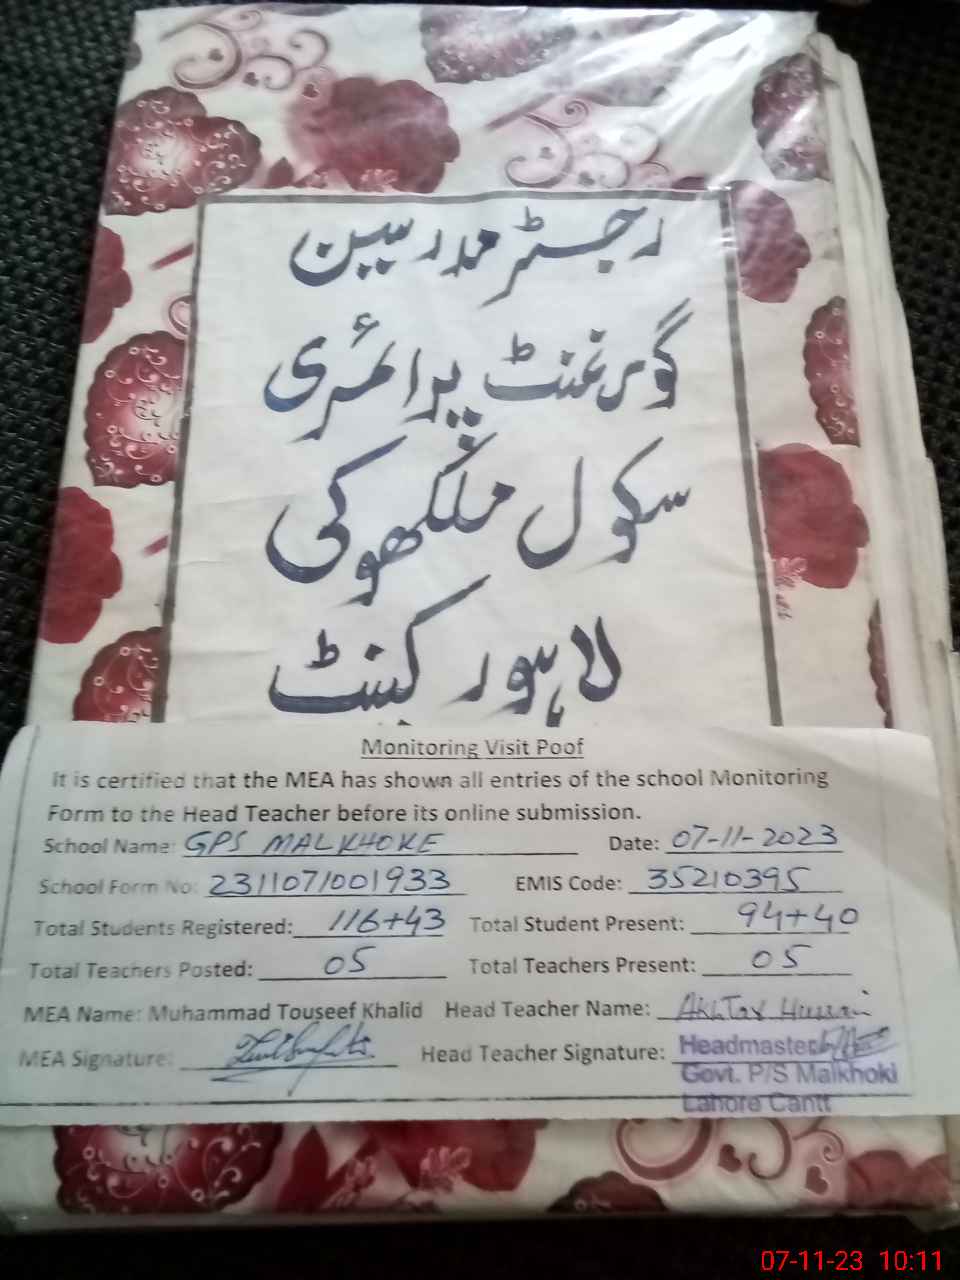 رجسٹر مدرسین
گورنمنٹ پرائمری
سکول ملکھوکی
لاہور کینٹ
Monitoring Visit Poof
It is certified that the MEA has shown all entries of the school Monitoring
Form to the Head Teacher before its online submission.
School Name: GPS MALKHOKE Date: 07-11-2023
School Form No: 2311071001933 EMIS Code: 35210395
Total Students Registered: 116+43 Total Student Present: 94+40
Total Teachers Posted: 05 Total Teachers Present: 05
MEA Name: Muhammad Touseef Khalid Head Teacher Name: Akhtar Hussain
MEA Signature: Head Teacher Signature: Headmaster
Govt. P/S Malkhoki
Lahore Cantt
07-11-23 10:11